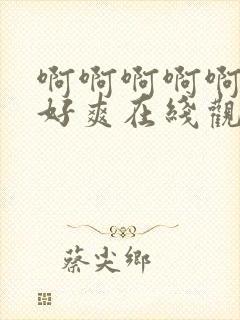 啊啊啊啊啊
好爽在线觀
蔡尖鄉